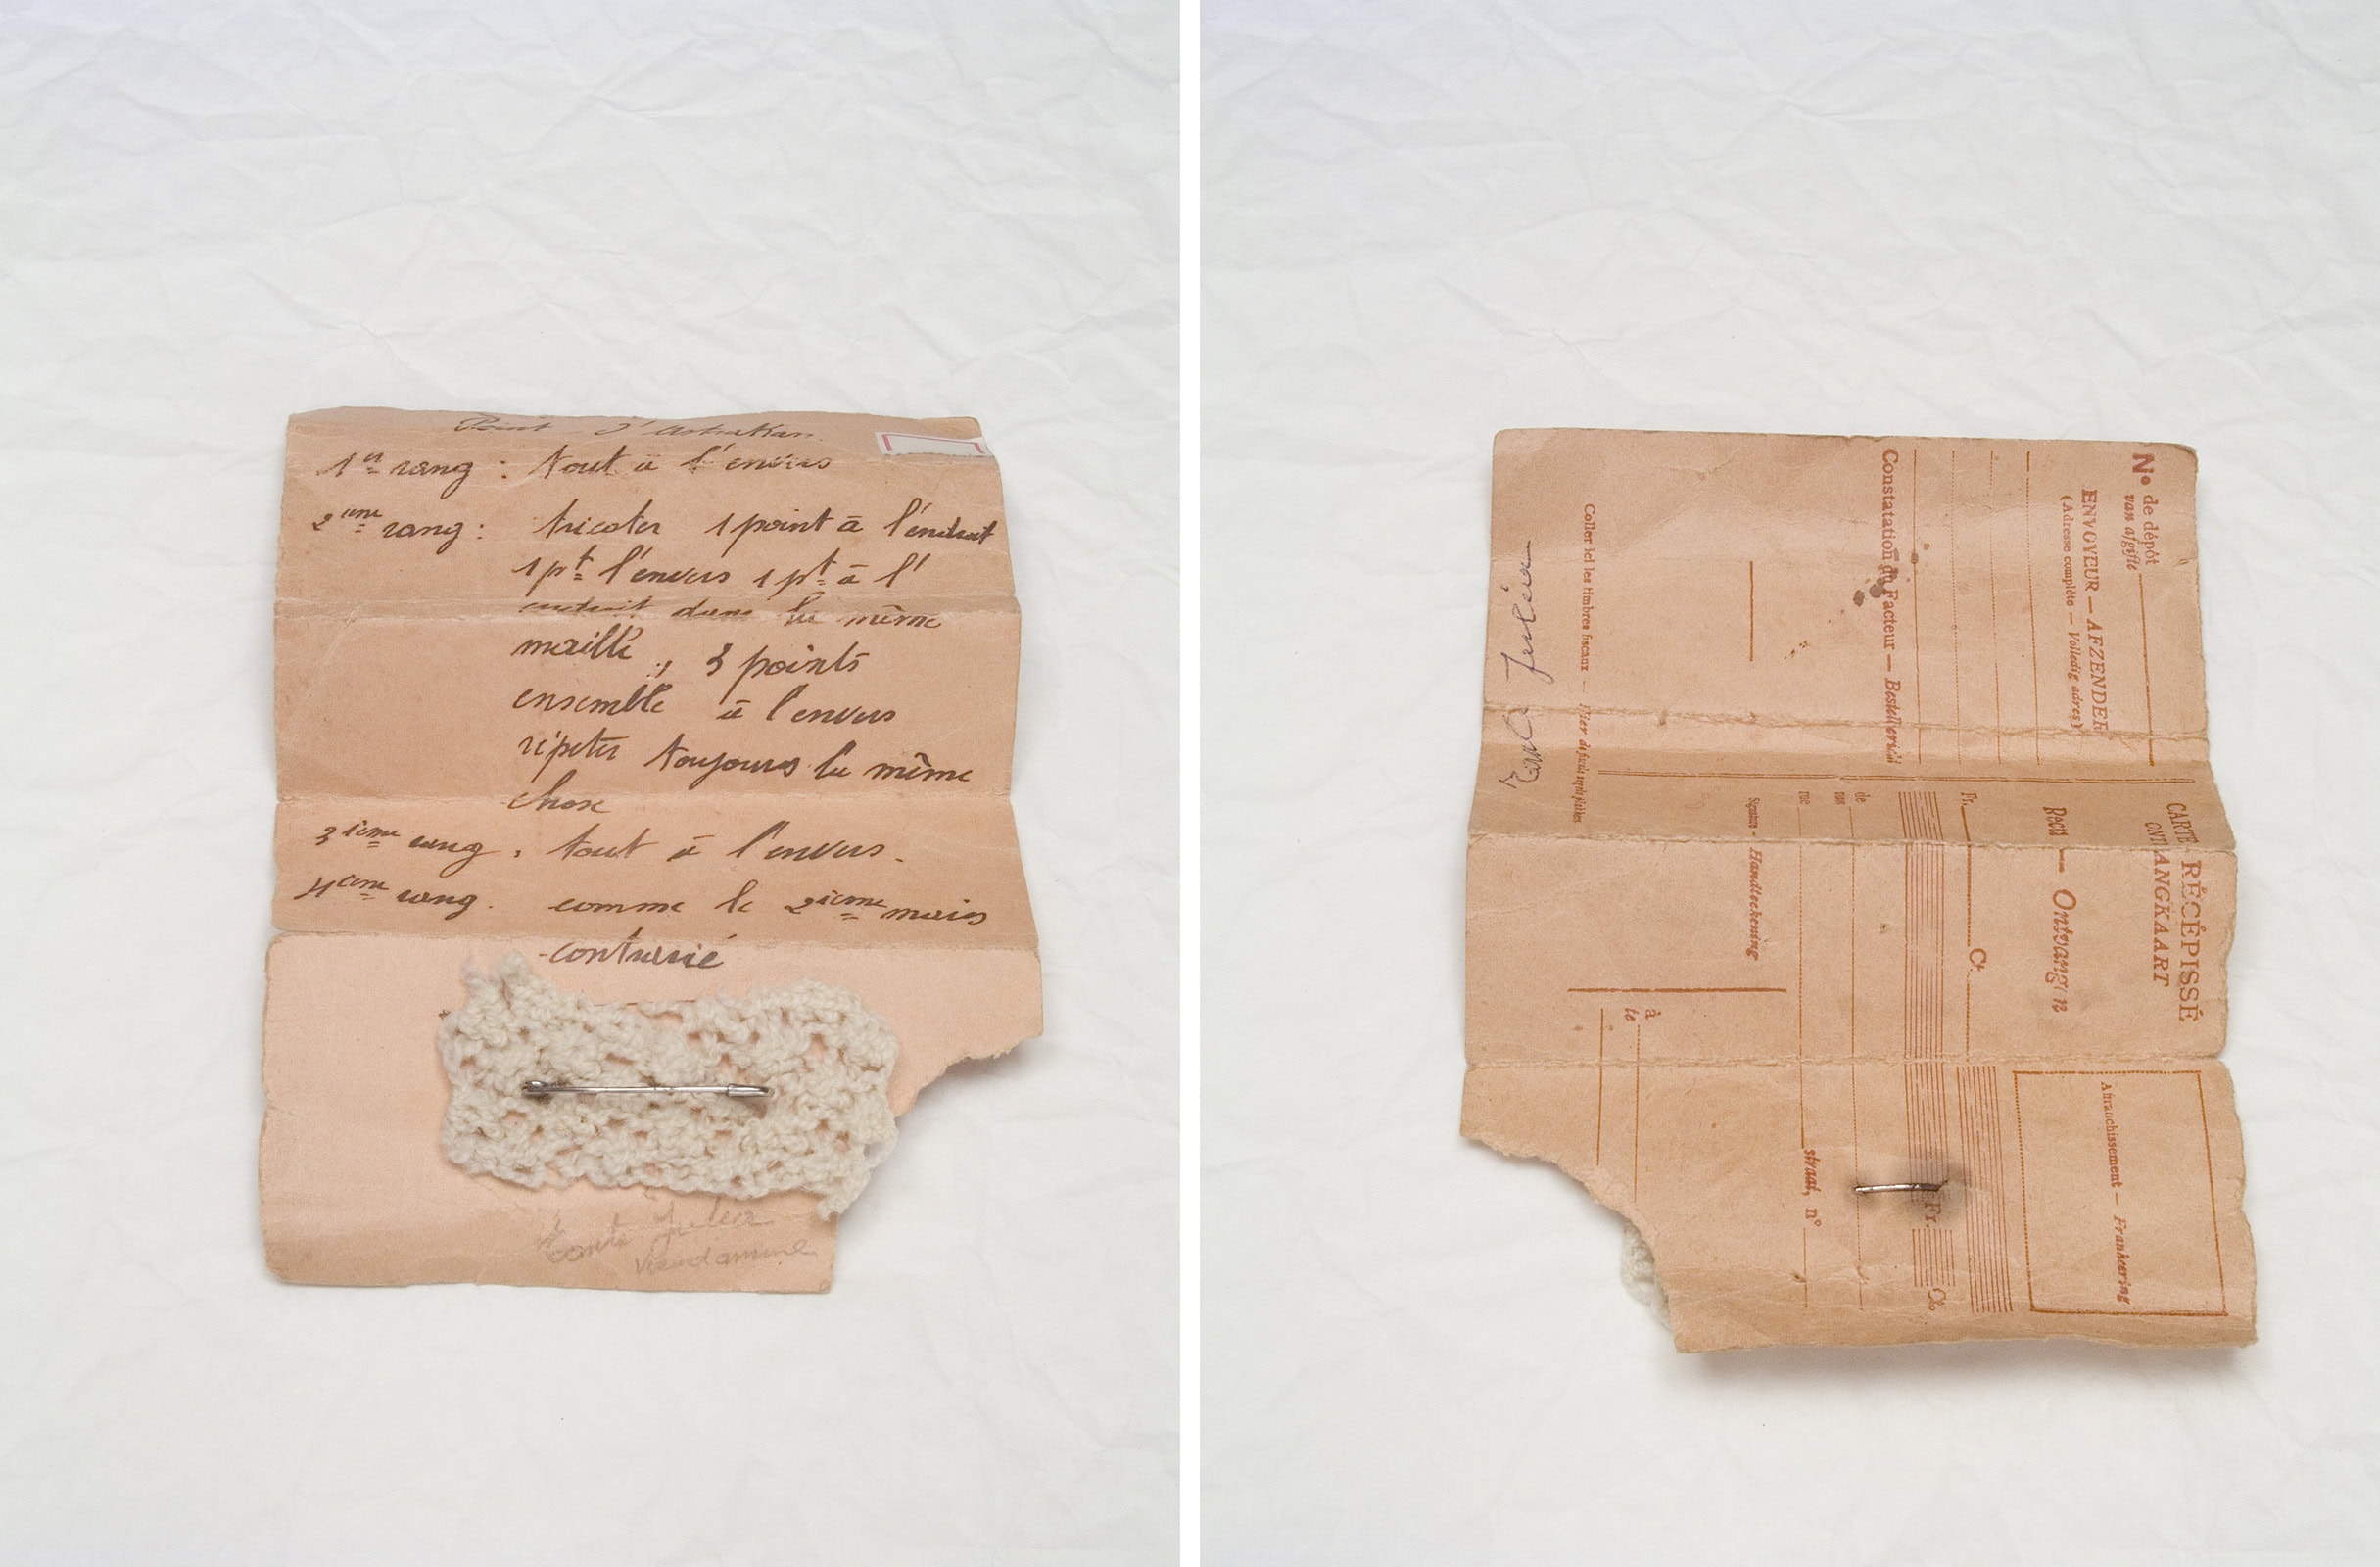 Point d'Astrakan.
1er rang : tout à l'envers
2ième rang : tricoter 1 point à l'endroit
1 pt l'envers 1 pt à l'
endroit dans la même
maille ; 3 points
ensemble à l'envers
répéter toujours la même
chose
3ième rang : tout à l'envers.
4ième rang. comme le 2ième mais
contrarié
Julia
No de dépôt
van afgifte
ENVOYEUR — AFZENDER
(Adresse complète — Volledig adres)
Constatation du Facteur — Bestelleridi
Coller ici les timbres fiscaux — Hier de fiscale zegels plakken
CARTE RÉCÉPISSÉ
ONTVANGKAART
Reçu — Ontvangen
Fr. Ct.
de
van
rue
straat, no
Signature - Handteekening
à
te
Affranchissement — Frankeering
Fr. Cts